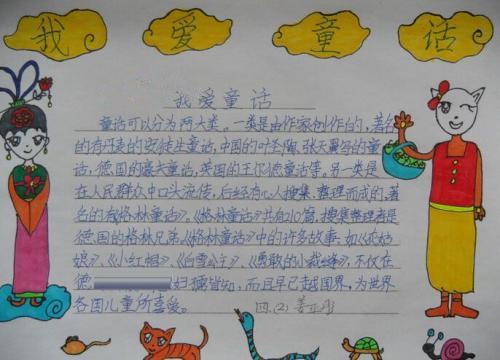 我爱童话
我爱童话
童话可以分为两大类。一类是由作家创作的,著名
的有丹麦的安徒生童话,中国的叶圣陶、张天翼写的童
话,德国的豪夫童话,英国的王尔德童话等。另一类是
在人民群众中口头流传,后经有心人搜集、整理而成的,著
名的有《格林童话》。《格林童话》共有210篇,搜集整理者是
德国的格林兄弟。《格林童话》中的许多故事,如《灰姑
娘》、《小红帽》、《白雪公主》、《勇敢的小裁缝》,不仅在
德 妇孺皆知,而且早已越国界,为世界
各国儿童所喜爱。 四.(2) 姜